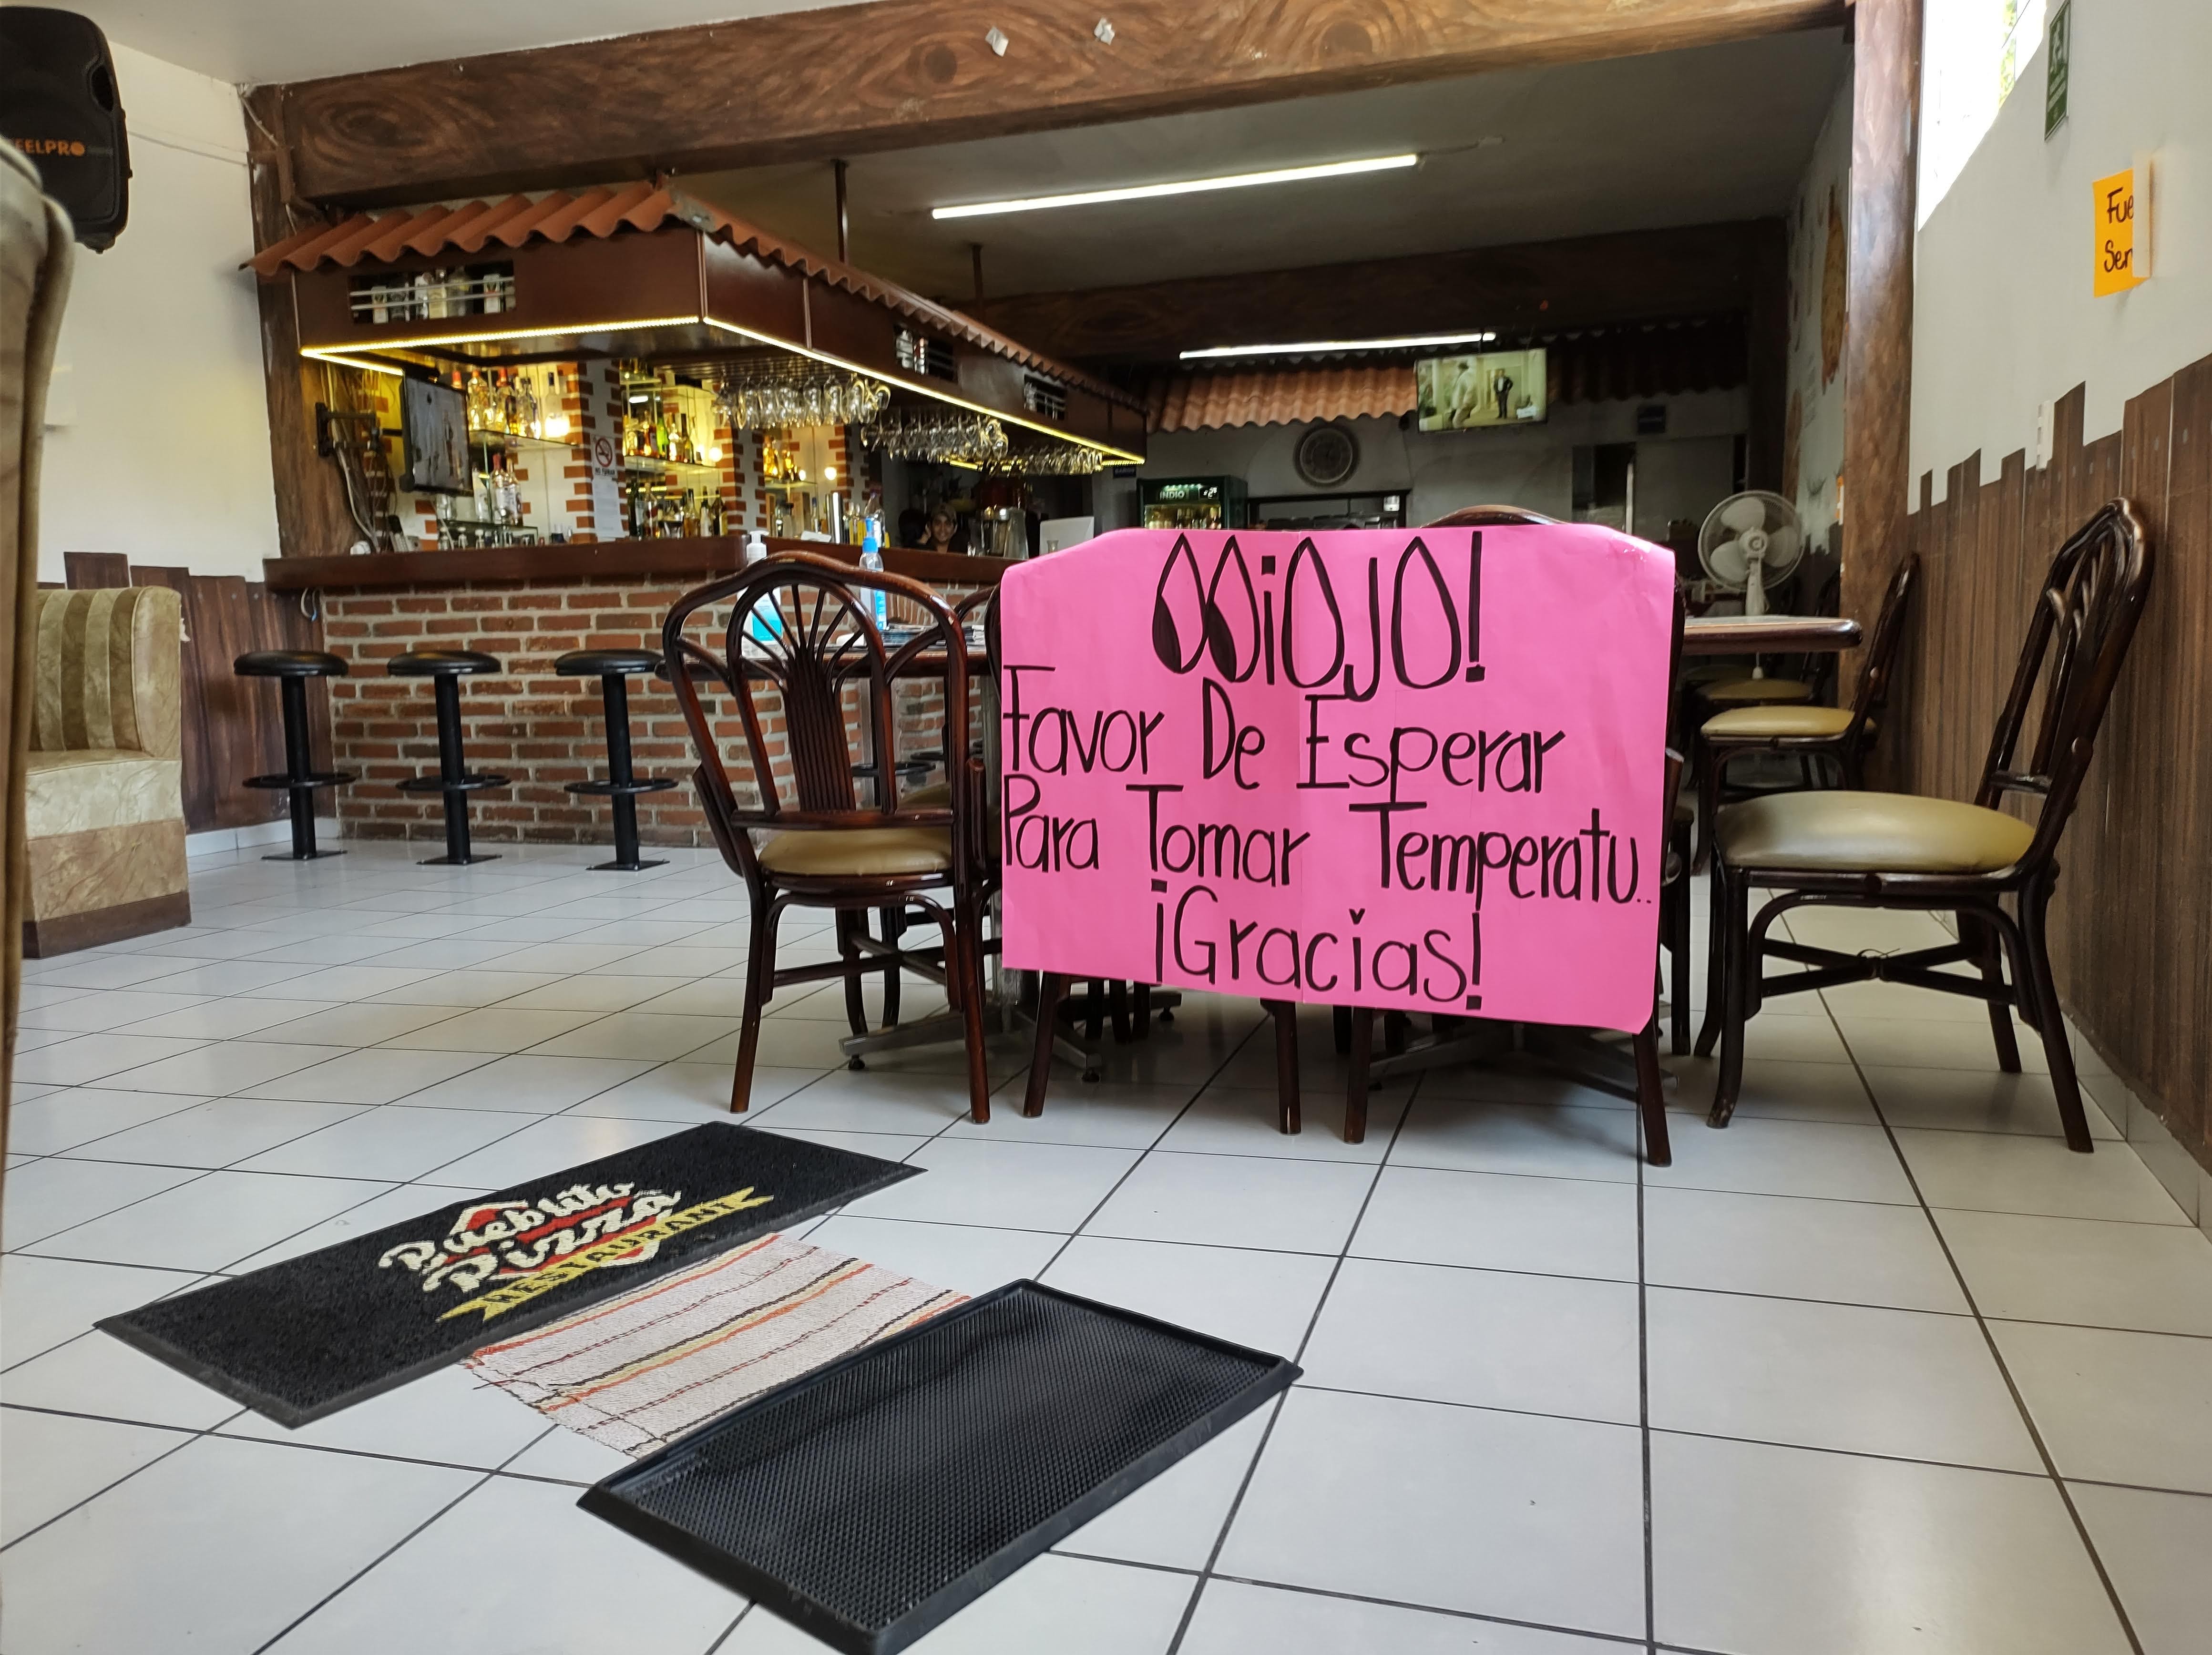 EELPRO
INDIO
Fue
Ser
¡OJO!
Favor De Esperar
Para Tomar Temperatu..
¡Gracias!
Pueblito
Pizza
RESTAURANTE